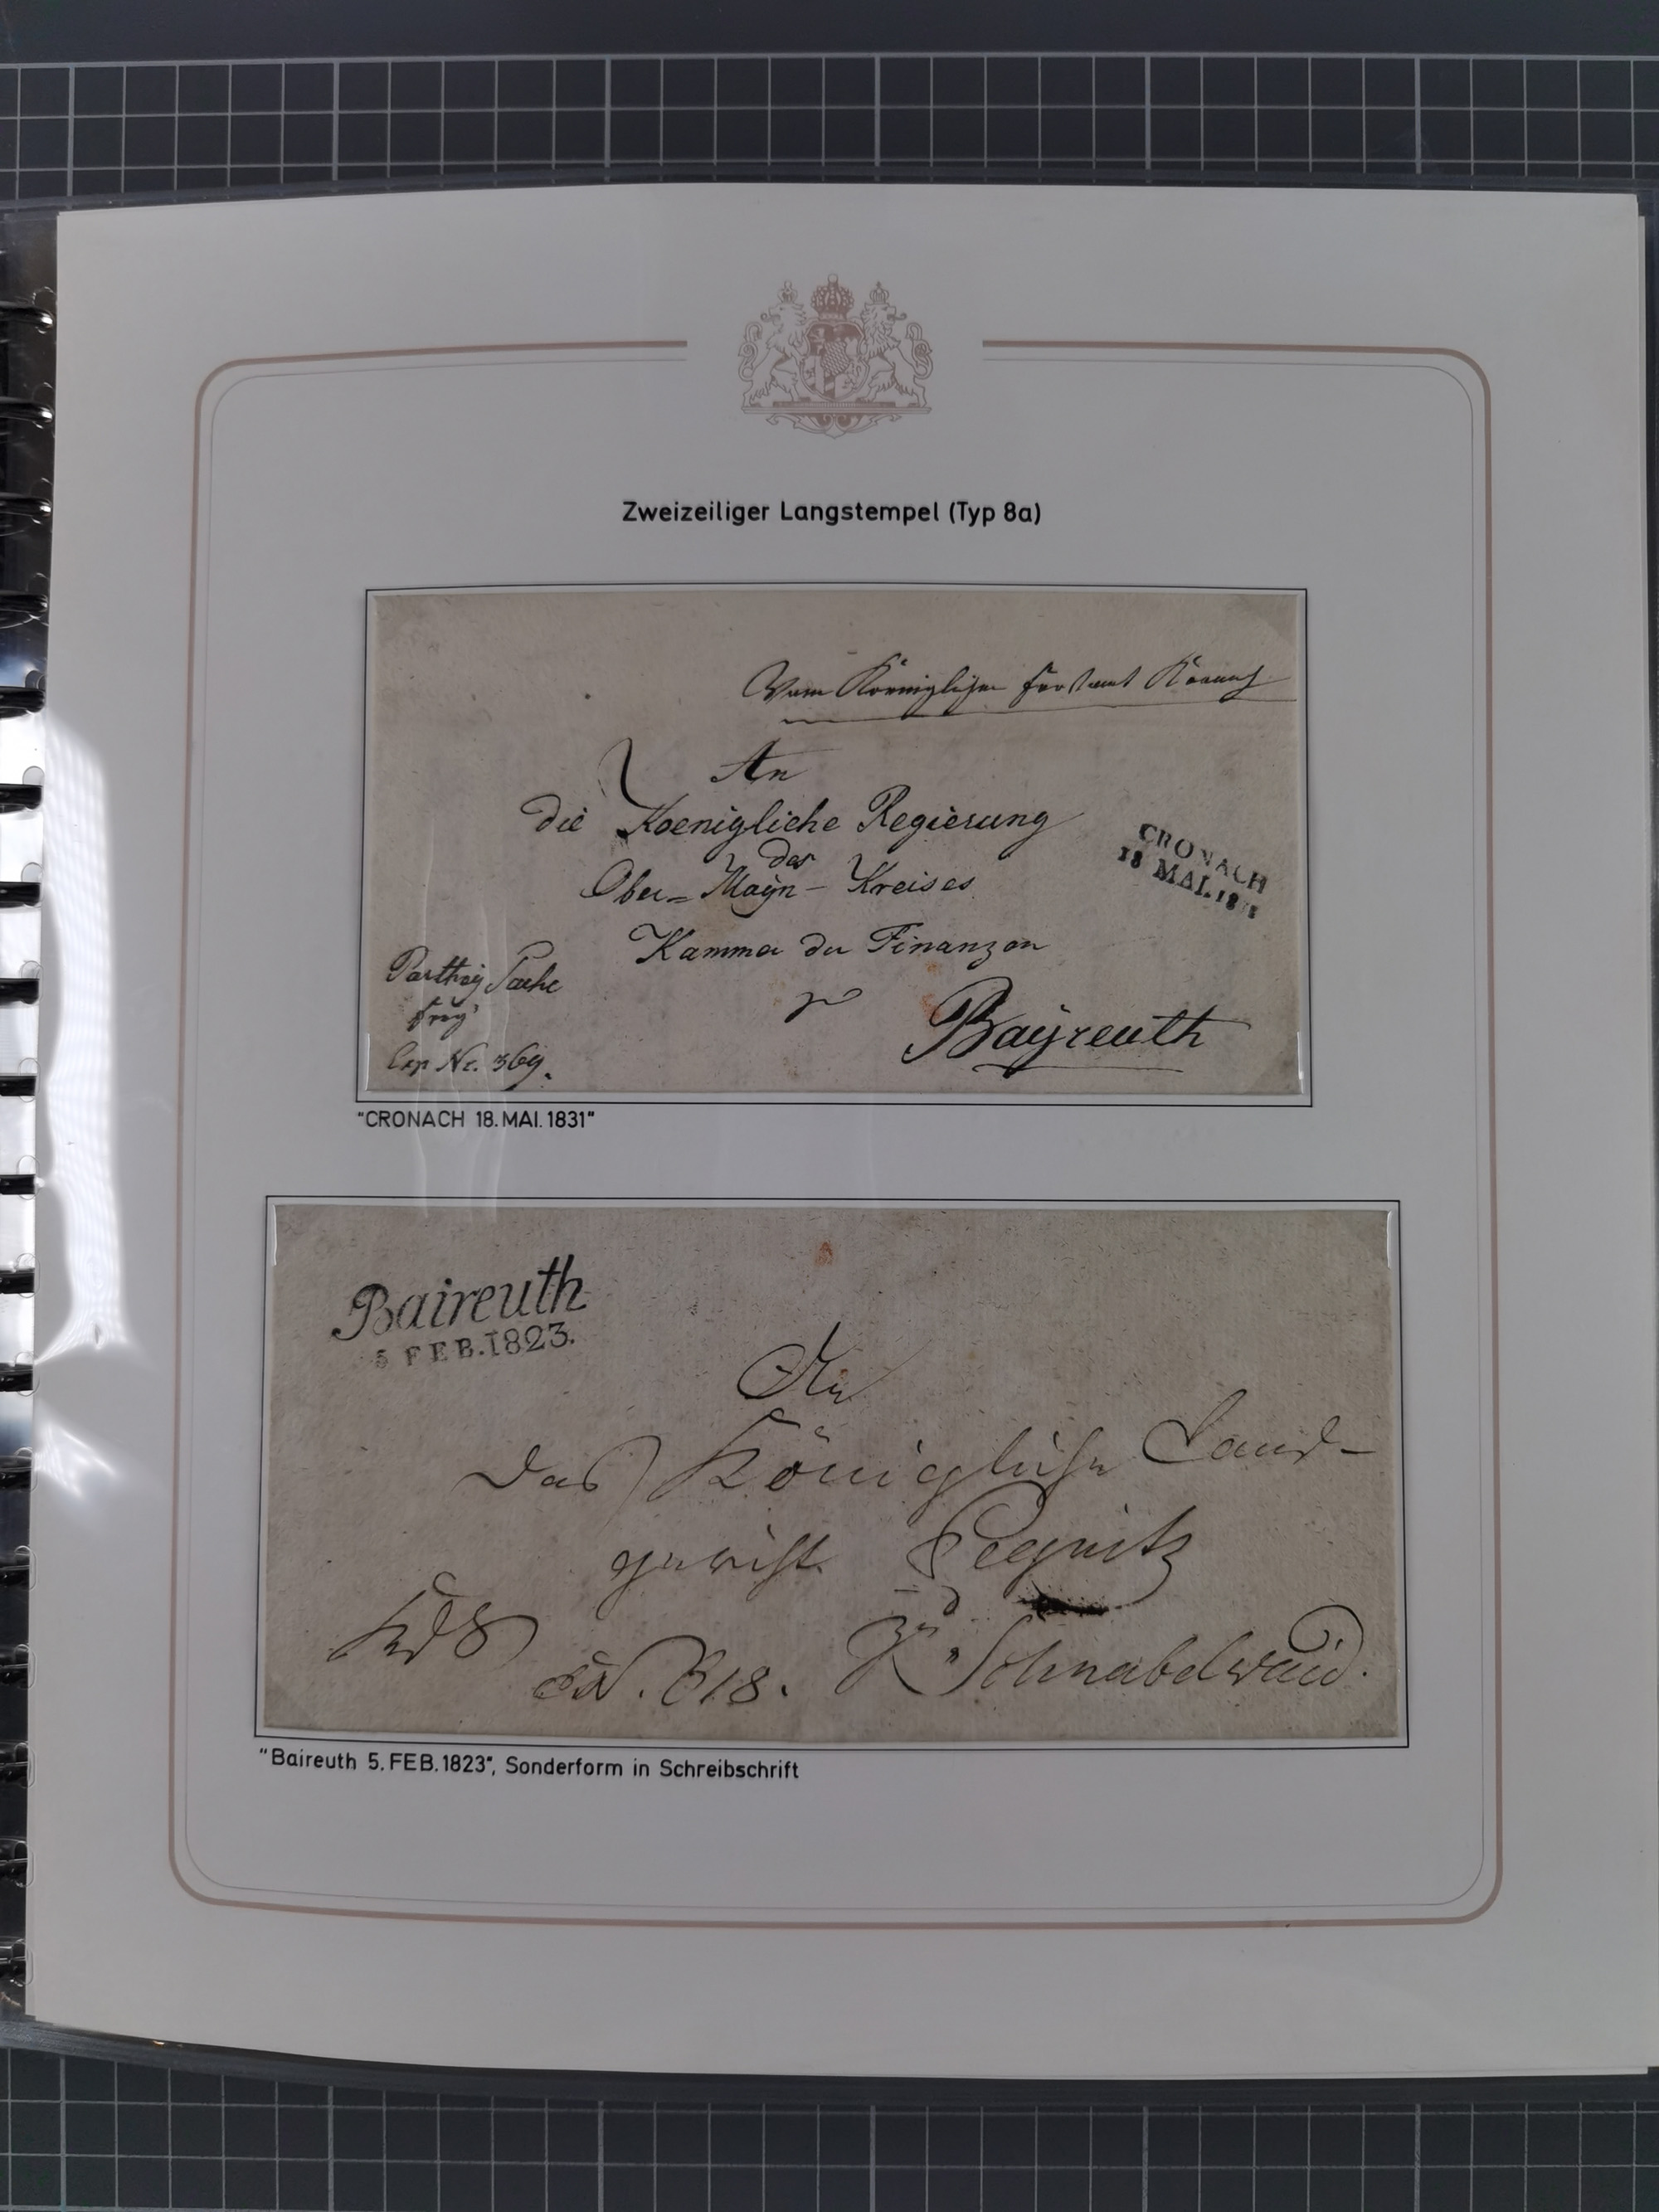 Zweizeiliger Langstempel (Typ 8a)
Vom Koeniglichen Forstamt
An
die Koenigliche Regierung
des
Ober=Mayn-Kreises
Kammer der Finanzen
Parthey Sache
frey
Exp Nr. 369.
zu
Bayreuth
CRONACH
18 MAI. 18
"CRONACH 18. MAI. 1831"
Baireuth
5 FEB. 1823.
An
Das Königliche Land-
gericht Pegnitz
zu Schnabelwaid.
"Baireuth 5. FEB. 1823", Sonderform in Schreibschrift